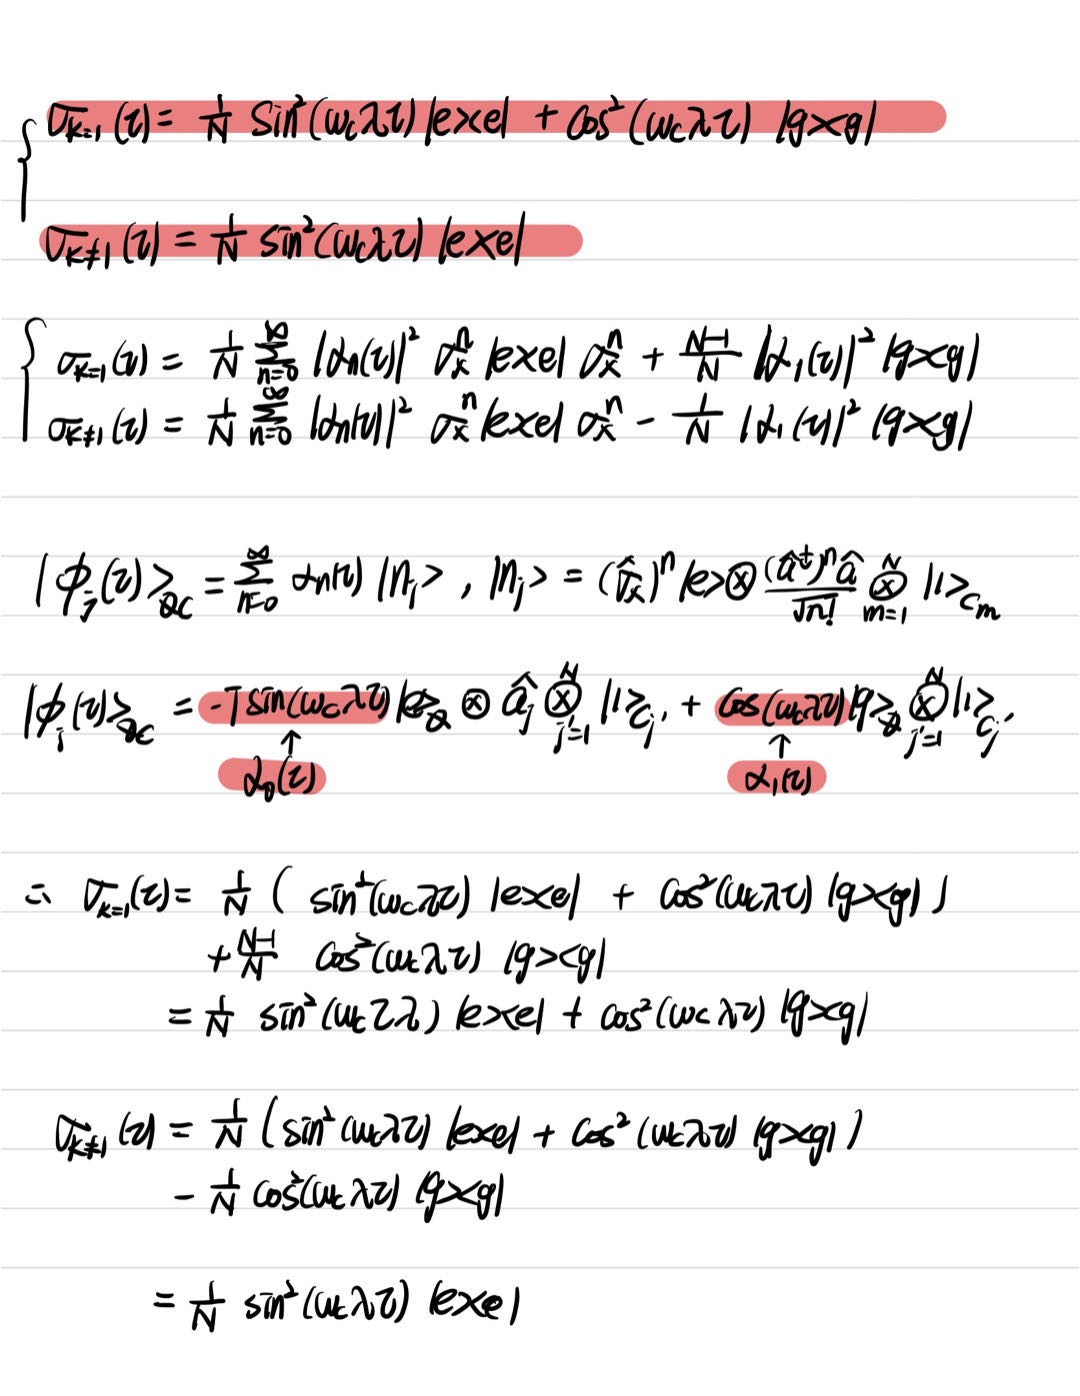 σ_{k=1}(τ) = 1/N sin²(ω_cλτ) |e><e| + cos²(ω_cλτ) |g><g|
σ_{k≠1}(τ) = 1/N sin²(ω_cλτ) |e><e|
σ_{k=1}(τ) = 1/N Σ_{n=0}^{∞} |α_n(τ)|² σ_x^n |e><e| σ_x^n + (N-1)/N |α_1(τ)|² |g><g|
σ_{k≠1}(τ) = 1/N Σ_{n=0}^{∞} |α_n(τ)|² σ_x^n |e><e| σ_x^n - 1/N |α_1(τ)|² |g><g|
|ϕ_j(τ)>_{QC} = Σ_{n=0}^{∞} α_n(τ) |n_j> , |n_j> = (σ̂_x)^n |e> ⊗ (â^†)^n â / √n! ⊗_{m=1}^{N} |1>_{C_m}
|ϕ_j(τ)>_{QC} = -i sin(ω_cλτ) |e>_Q ⊗ â_j ⊗_{j'=1}^{N} |1>_{C_j'} + cos(ω_cλτ) |g>_Q ⊗_{j'=1}^{N} |1>_{C_j'}
↑ ↑
α_0(τ) α_1(τ)
∴ σ_{k=1}(τ) = 1/N ( sin²(ω_cλτ) |e><e| + cos²(ω_cλτ) |g><g| )
+ (N-1)/N cos²(ω_cλτ) |g><g|
= 1/N sin²(ω_cτλ) |e><e| + cos²(ω_cλτ) |g><g|
σ_{k≠1}(τ) = 1/N ( sin²(ω_cλτ) |e><e| + cos²(ω_cλτ) |g><g| )
- 1/N cos²(ω_cλτ) |g><g|
= 1/N sin²(ω_cλτ) |e><e|